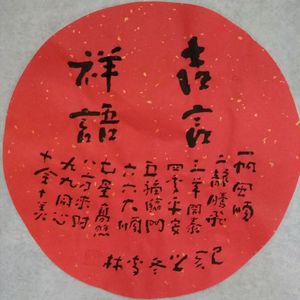 吉言
祥語
一帆風順
二龍騰飛
三羊開泰
四季平安
五福臨門
六六大順
七星高照
八方來財
九九同心
十全十美
己亥
冬
林